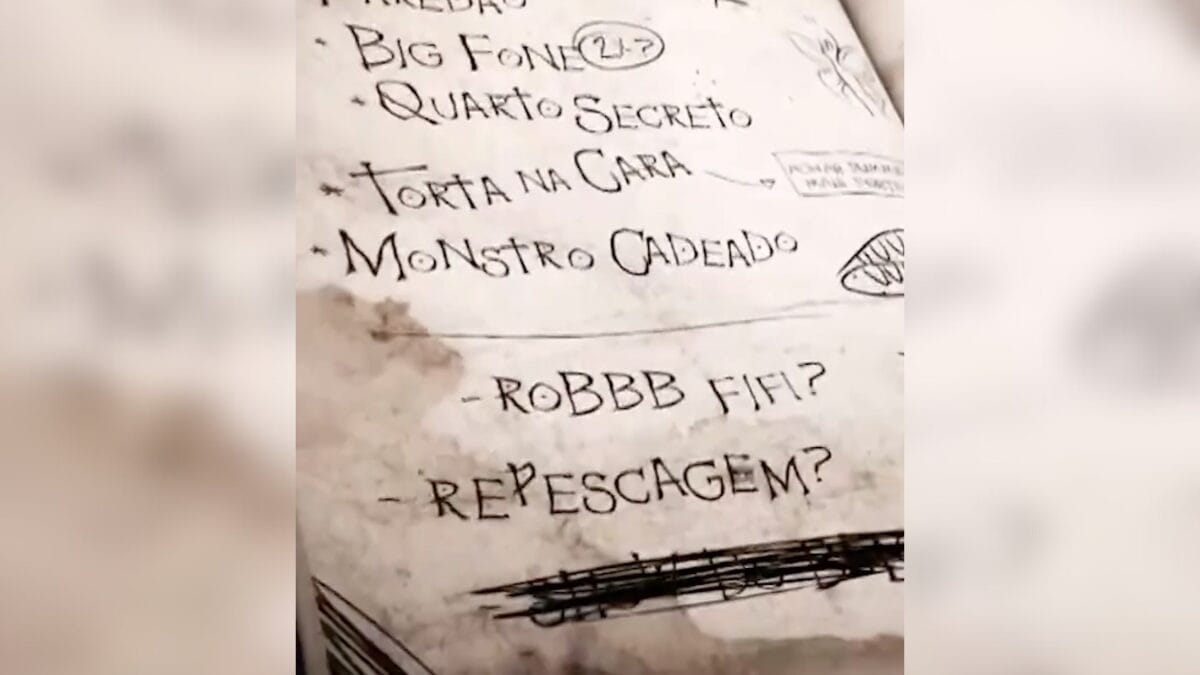 BIG FONE 21?
QUARTO SECRETO
TORTA NA CARA
MONSTRO CADEADO
- ROBBB FIFI?
- REPESCAGEM?